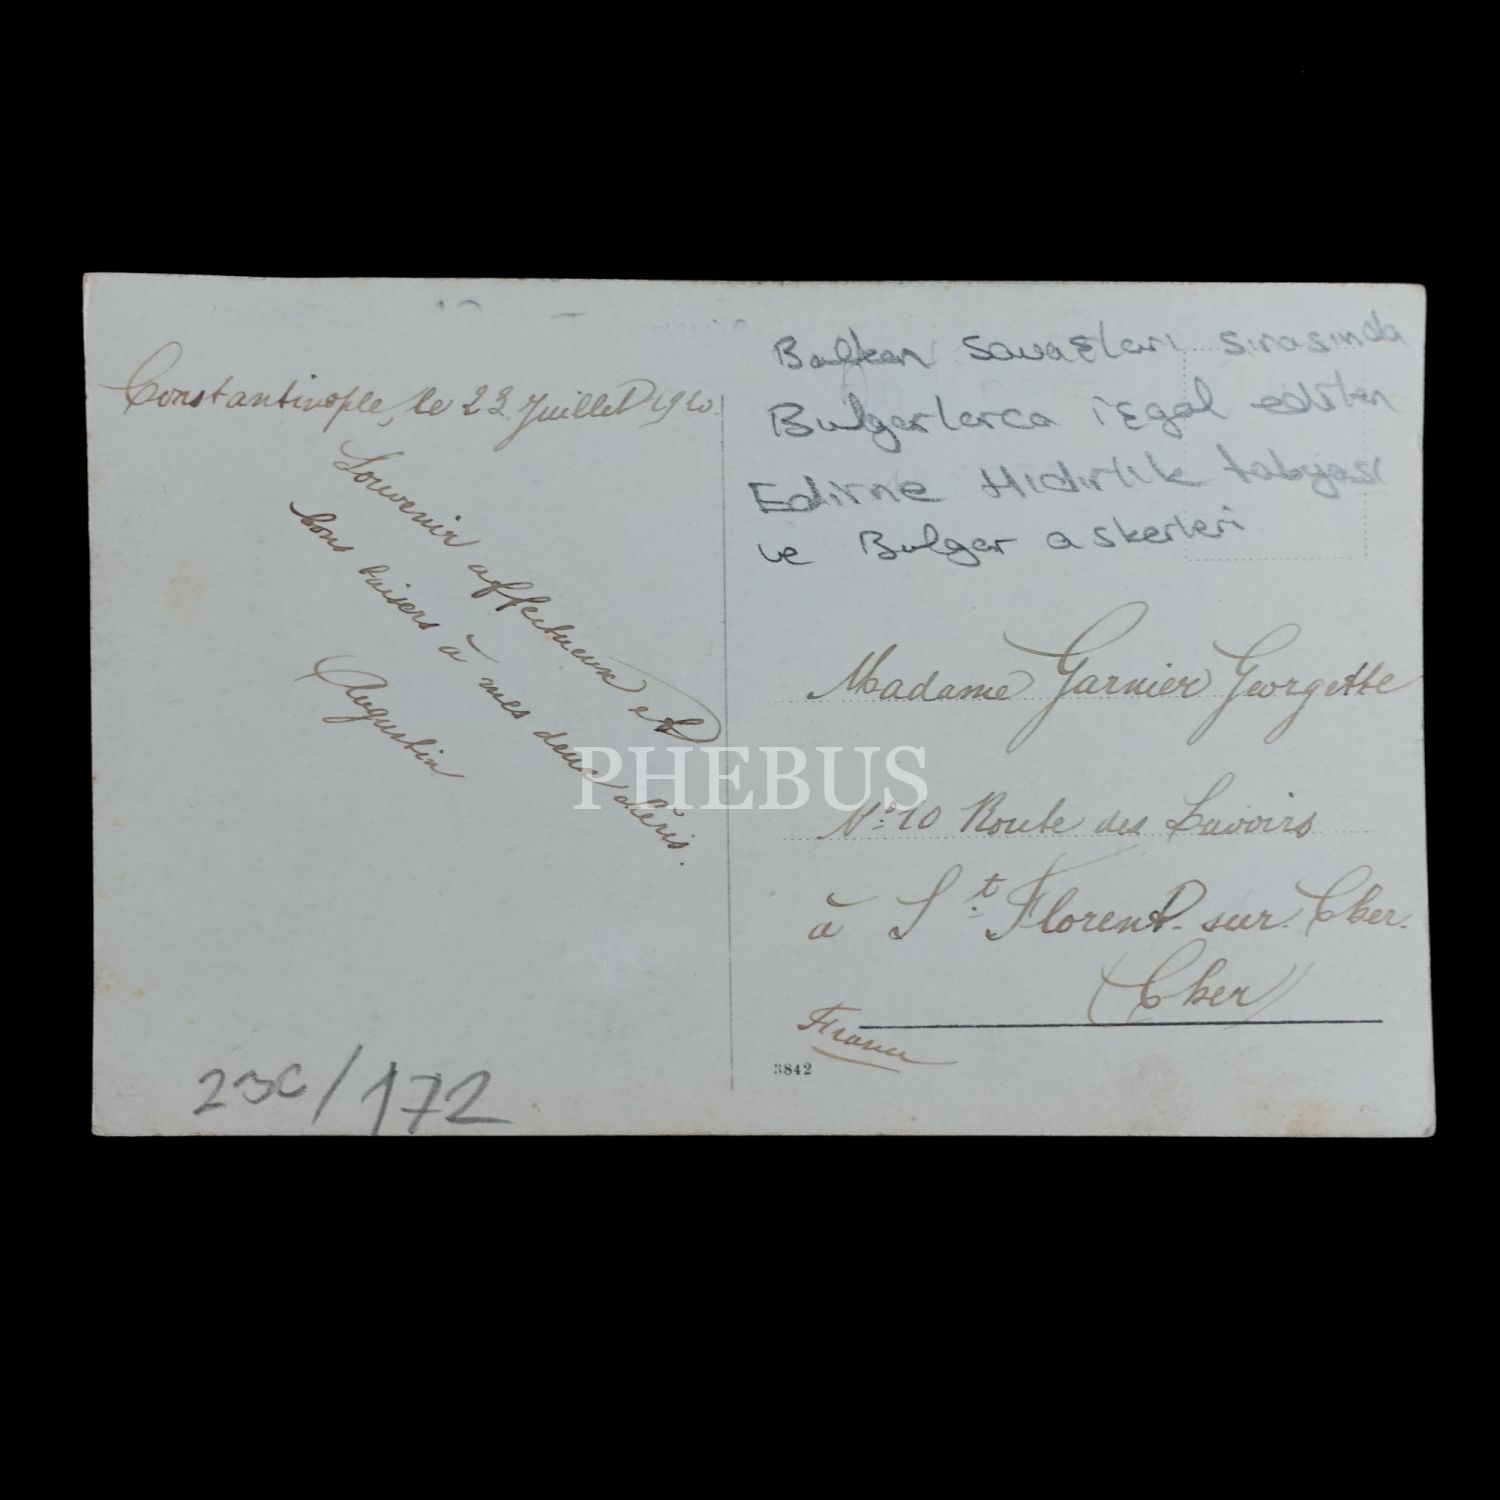 Constantinople, le 23 Juillet 1920.
Souvenir affectueux et
bons baisers à mes deux chéris.
Augustin
230/172
Balkan Savaşları sırasında
Bulgarlarca işgal edilen
Edirne Hıdırlık tabyası
ve Bulgar askerleri
Madame Garnier Georgette
Nº 10 Route des Lavoirs
à St Florent-sur-Cher.
(Cher)
France
3842
PHEBUS